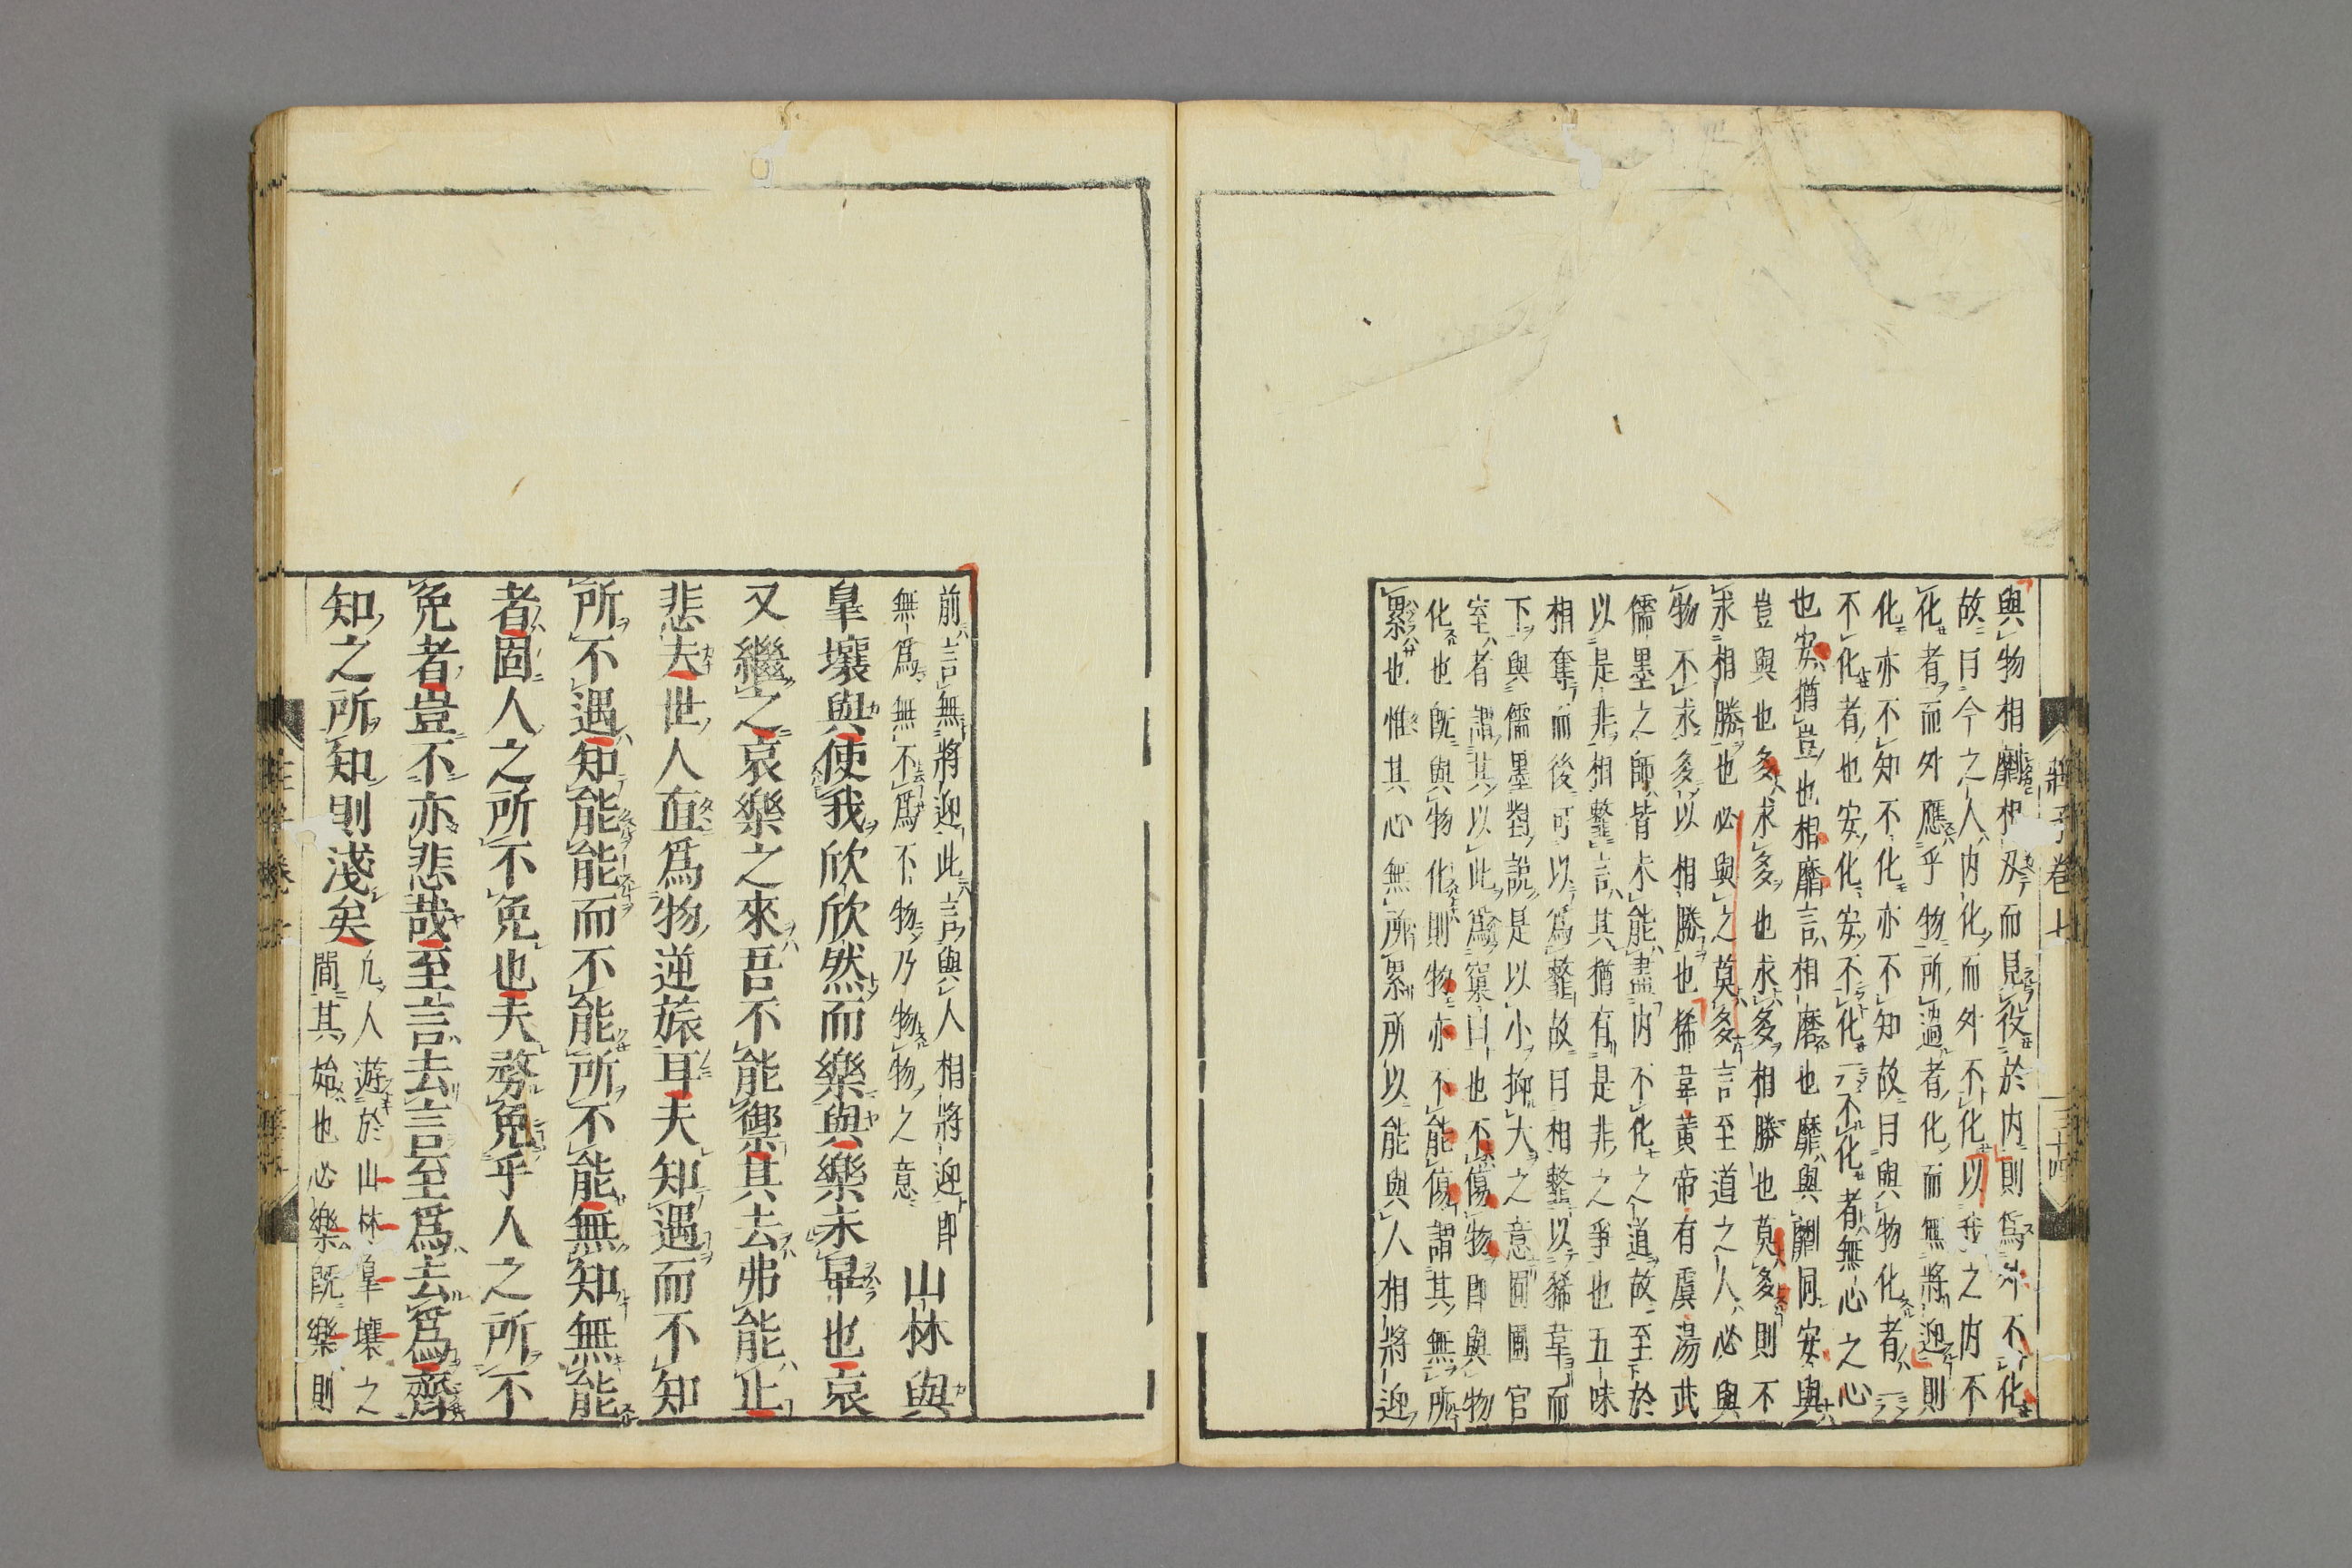 與物相劘相刄而見役於内則爲外不化
故曰今之人内化而外不化以我之内不
化者而外應乎物所過者化而無將迎則
化亦不知不化亦不知故曰與物化者一
不化者也安化安不化一不化者無心之心
也安猶豈也相靡言相磨也靡與劘同安與
豈與也多求多也求多相勝也莫多則不
求相勝也必與之莫多言至道之人必與
物不求多以相勝也狶韋黄帝有虞湯武
儒墨之師皆未能盡内不化之道故至於
以是非相𩐋言其猶有是非之爭也五味
相奪而後可以爲𩐋故曰相𩐋以狶韋而
下與儒墨對説是以小抑大之意囿圃官
室者謂其以此爲窠臼也不傷物即與物
化也既與物化則物亦不能傷謂其無所
累也惟其心無所累所以能與人相將迎
莊子卷七
三十四
前言無將迎此言與人相將迎即
無爲無不爲不物乃物物之意
山林與
皐壤與使我欣欣然而樂與樂未畢也哀
又繼之哀樂之來吾不能禦其去弗能止
悲夫世人直爲物逆旅耳夫知遇而不知
所不遇知能能而不能所不能無知無能
者固人之所不免也夫務免乎人之所不
免者豈不亦悲哉至言去言至爲去爲齊
知之所知則淺矣
凡人遊於山林皐壤之
間其始也必樂既樂則